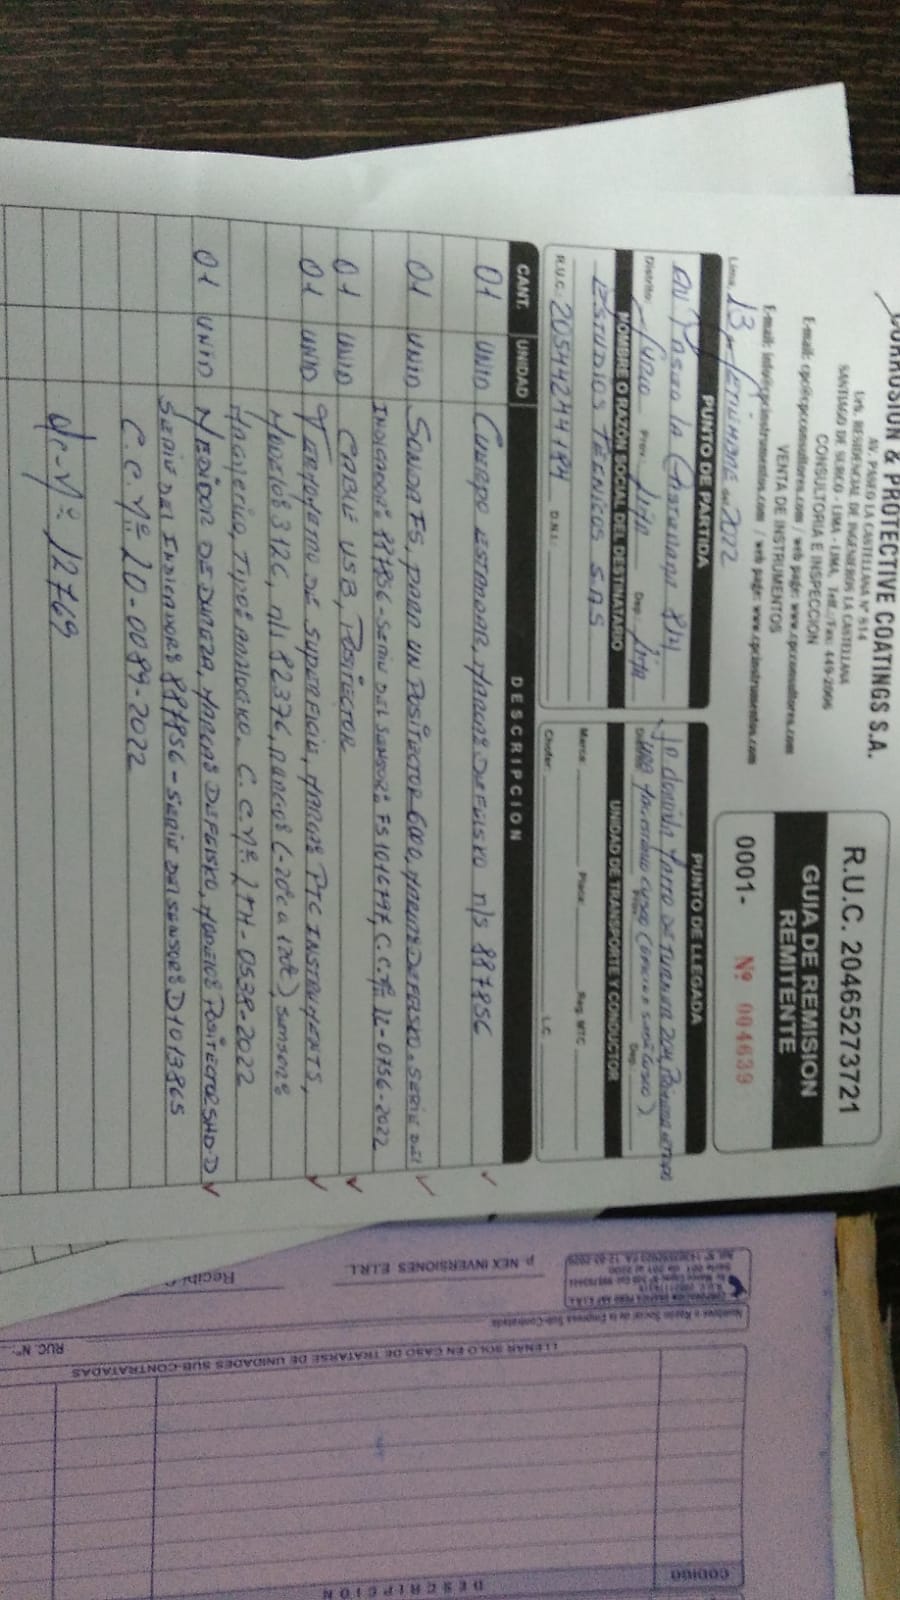 CORROSION & PROTECTIVE COATINGS S.A.
AV. PASEO LA CASTELLANA Nº 814
Urb. RESIDENCIAL DE INGENIEROS LA CASTELLANA
SANTIAGO DE SURCO - LIMA - LIMA Telf./Fax: 449-2006
CONSULTORIA E INSPECCIÓN
E-mail: cpc@cpcconsultores.com / web page: www.cpcconsultores.com
VENTA DE INSTRUMENTOS
E-mail: info@cpcinstrumentos.com / web page: www.cpcinstrumentos.com
R.U.C. 20465273721
GUIA DE REMISION
REMITENTE
0001- Nº 004639
Lima, 13 Setiembre 2022
PUNTO DE PARTIDA
Av Paseo la Castellana 814
Distrito: Surco Prov. Lima Dep. Lima
PUNTO DE LLEGADA
NOMBRE O RAZON SOCIAL DEL DESTINATARIO
ESTUDIOS TÉCNICOS S.A.S
R.U.C. 20544244184 D.N.I.:
UNIDAD DE TRANSPORTE Y CONDUCTOR
Marca: Placa: Reg. MTC
Chofer: L.C.
CANT. UNIDAD DESCRIPCION
01 UNID CUERPO ESTANDAR, MARCA: DEFELSKO n/s 887856
01 UNID SONDA FS, PARA UN POSITECTOR 6000, MARCA: DEFELSKO. SERIE DEL
INDICADOR: 887856 - SERIE DEL SENSOR: FS1016797, C.C. Nº LL-0756-2022
01 UNID CABLE USB, POSITECTOR
01 UNID TERMOMETRO DE SUPERFICIE, MARCA: PTC INSTRUMENTS,
MODELO: 312C, n/s 82376, RANGO: (-20c a 120c), SENSOR:
MAGNETICO, TIPO: ANALOGICO. C.C. Nº LTH-0538-2022
01 UNID MEDIDOR DE DUREZA, MARCA: DEFELSKO, MODELO: POSITECTOR SHD-D
SERIE DEL INDICADOR: 887856 - SERIE DEL SENSOR: D1013865
C.C. Nº 20-0089-2022
OC-Nº 12769
p. NEX INVERSIONES E.I.R.L.
Recibí
Nombre o Razón Social de la Empresa Sub-Contratada
RUC. Nº:
LLENAR SOLO EN CASO DE TRATARSE DE UNIDADES SUB-CONTRATADAS
CODIGO
DESCRIPCION